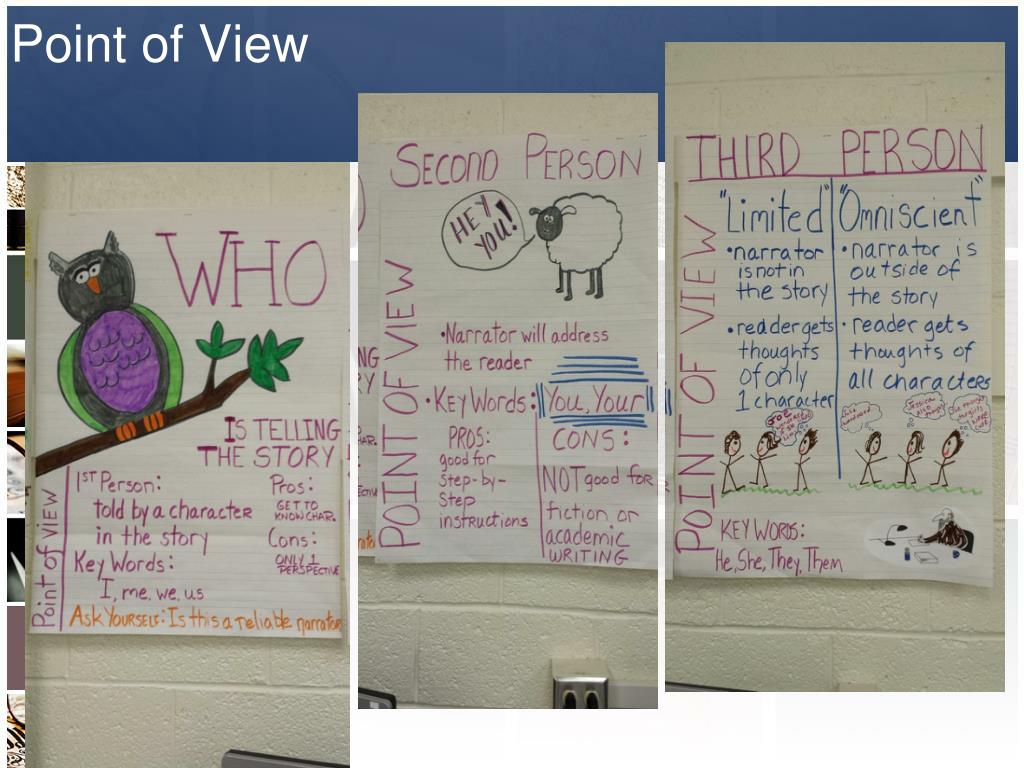 Point of View
WHO
IS TELLING
THE STORY
Point of View
1ST Person:
told by a character
in the story
Key Words:
I, me, we, us
Pros:
GET TO
KNOW CHAR.
Cons:
ONLY 1
PERSPECTIVE
ASK YOURSELF: Is this a reliable narrator
SECOND PERSON
HEY
YOU!
POINT OF VIEW
•Narrator will address
the reader
•Key Words: "You, Your"
PROS:
good for
step-by-
step
instructions
CONS:
NOT good for
fiction, or
academic
WRITING
THIRD PERSON
POINT OF VIEW
"Limited"
•narrator
is not in
the story
•reader gets
thoughts
of only
1 character
"Omniscient"
•narrator is
outside of
the story
•reader gets
thoughts of
all characters
KEY WORDS:
He, She, They, Them